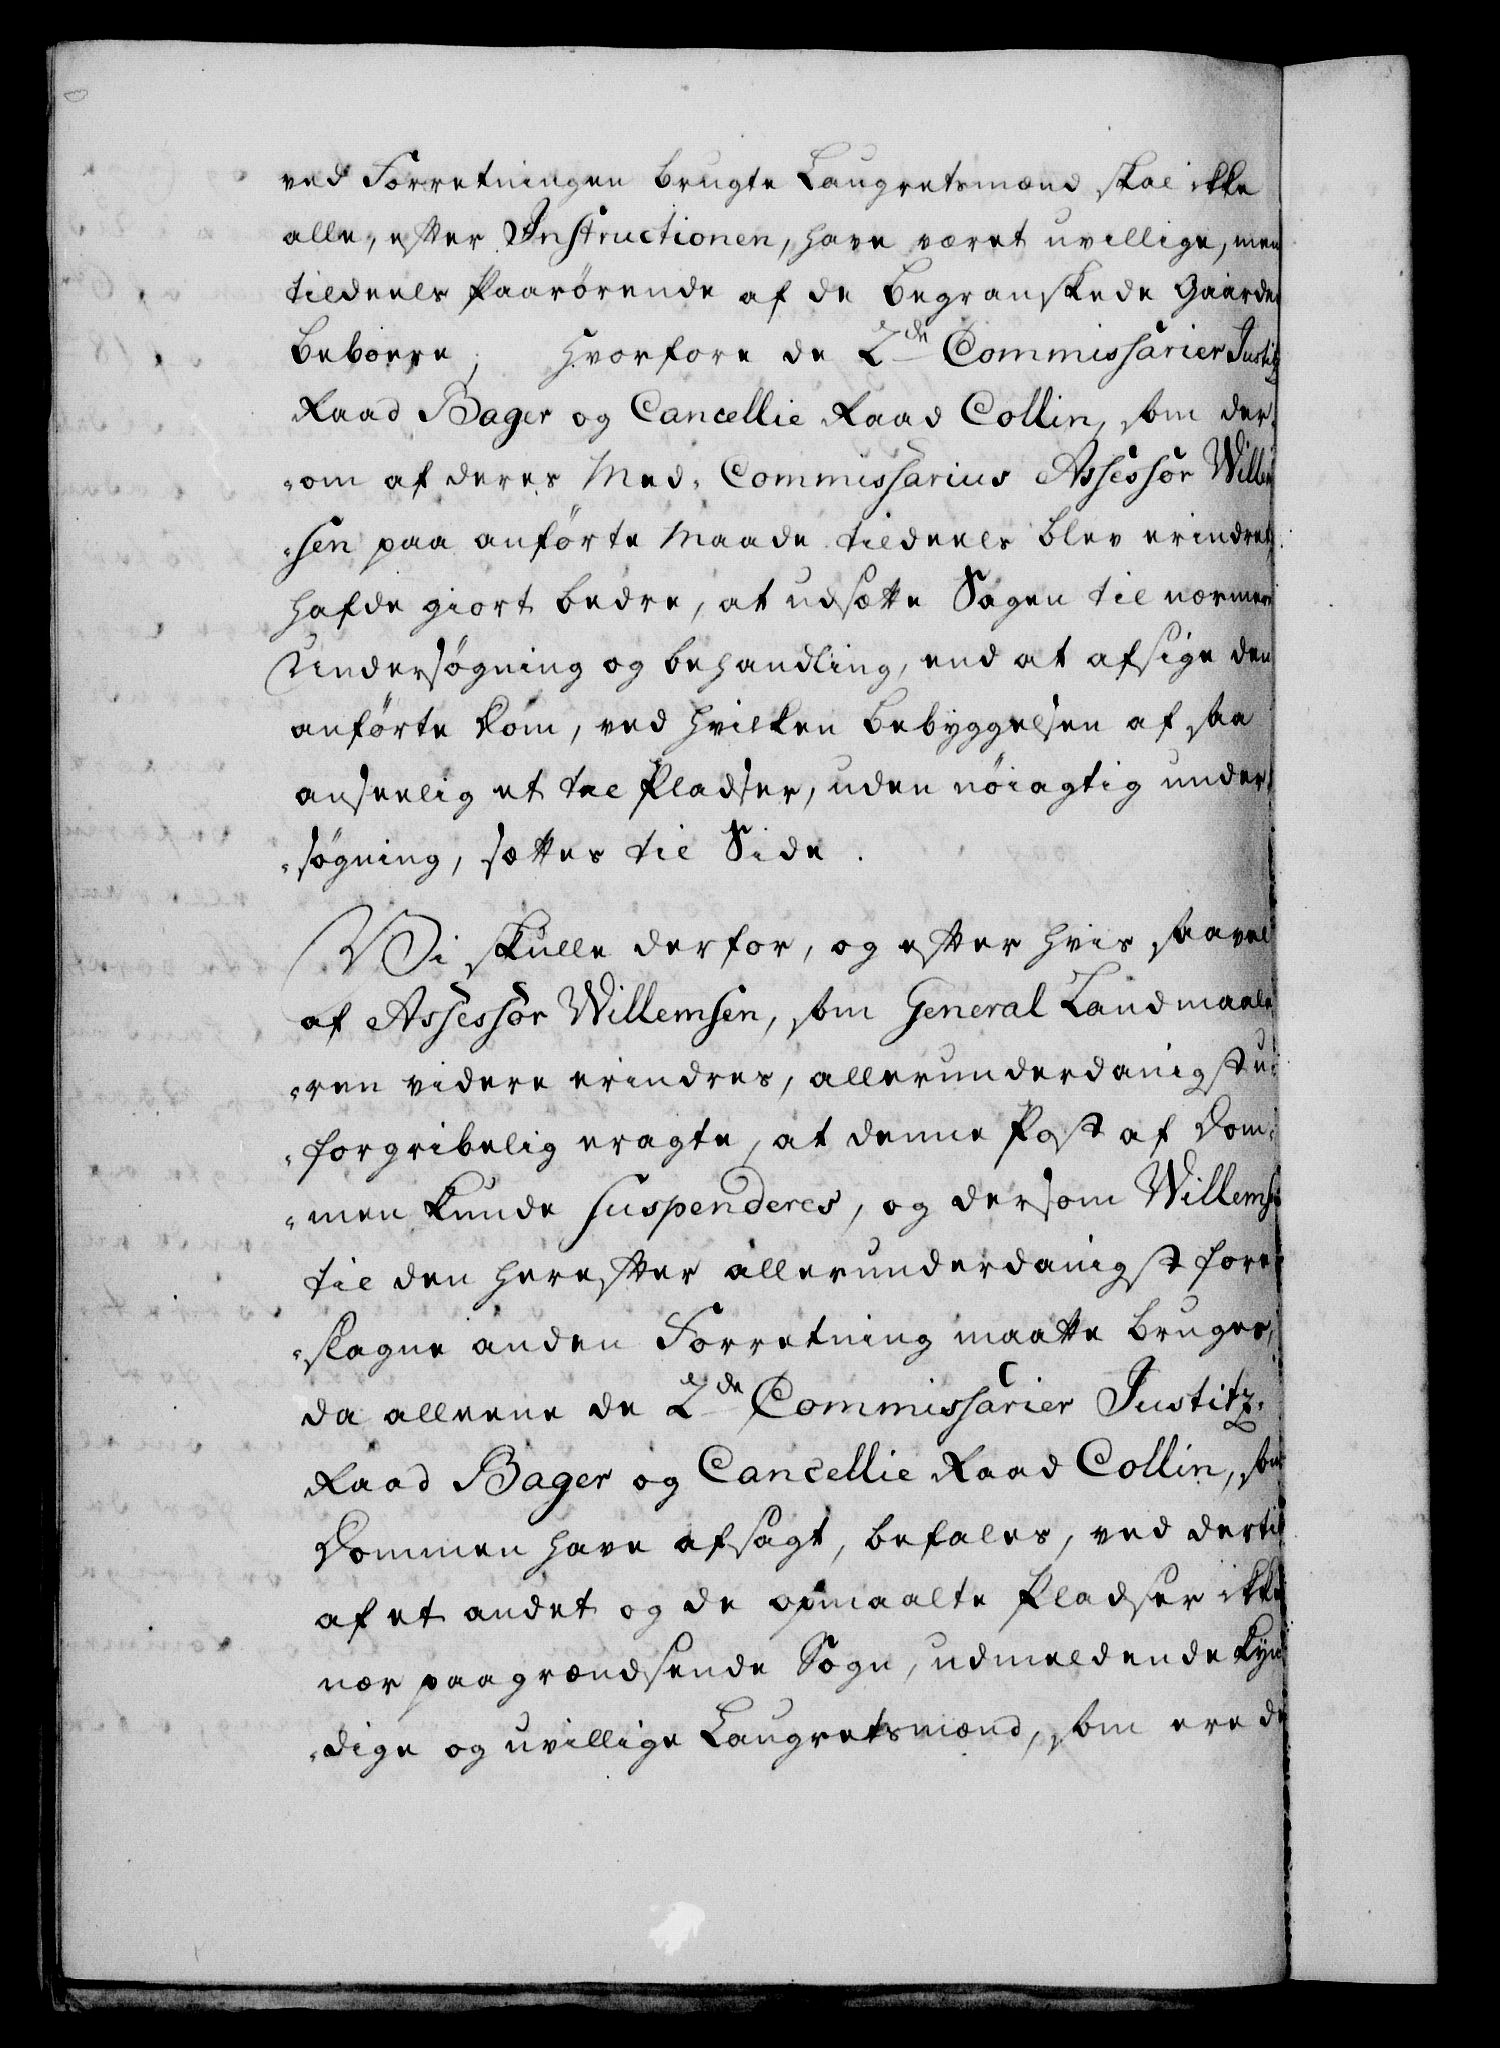 ved Forretningen brugte Laugretsmænd skal ikke
alle, efter Instructionen, have været uvillige, men
tildeels Paarørende af de begranskede Gaarde
beboere, hvorfore de 2de Commissarier Justitz
Raad Bager og Cancellie Raad Collin, som der-
-om af deres Med-Commissarius Assessor Willem
-sen paa anførte Maade tildeels blev erindret,
hafde giort bedre, at udsætte Sagen til nærmere
Undersøgning og behandling, end at afsige den
anførte Dom, ved hvilken Bebyggelsen af saa
anseelig et tal Pladser, uden nöiagtig under
-søgning, sættes til Side.
Vi skulle derfor, og efter hvis saavel
af Assessor Willemsen, som General Landmaale
-ren videre erindres, allerunderdanigst u-
-forgribelig eragte, at denne Post af Dom-
-men kunde suspenderes, og dersom Willemse
til den herefter allerunderdanigst fore
-slagne anden Forretning maatte bruges,
da alleene de 2de Commissarier Justitz-
Raad Bager og Cancellie Raad Collin, som
Dommen have afsagt, befales, ved dertil
af et andet og de opmaalte Pladser ikke
nær paagrændsende Sogn, udmeldende kyn
-dige og uvillige Laugretsmænd, som ere de